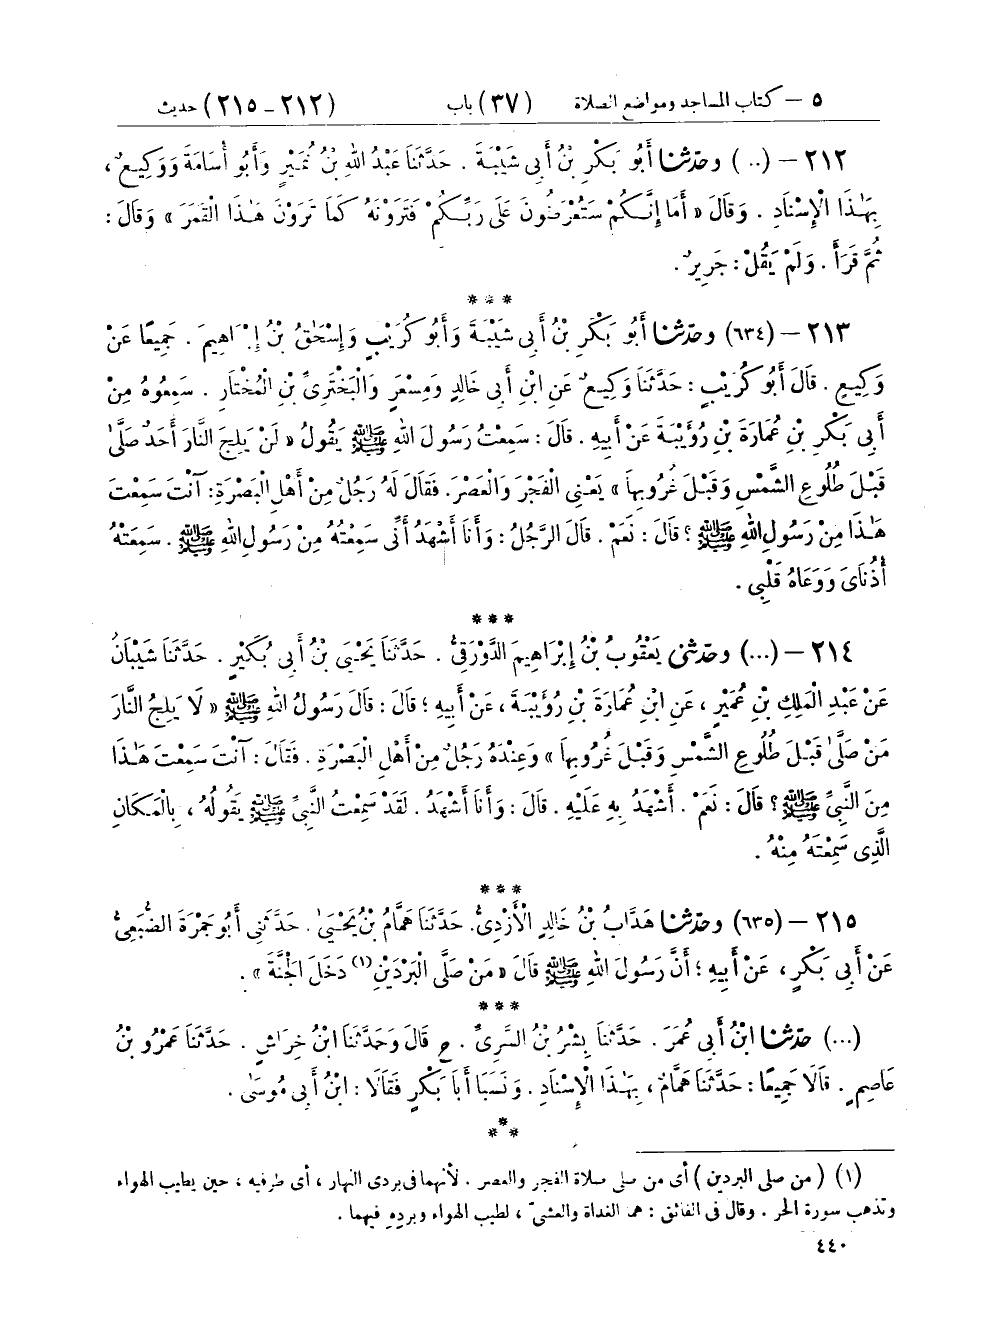 ٥ – كتاب المساجد ومواضع الصلاة (٣٧) باب (٢١٢ – ٢١٥) حديث
٢١٢ – (..) وحدّثنا أَبُو بَكْرِ بْنُ أَبِى شَيْبَةَ . حَدَّثَنَا عَبْدُ اللهِ بْنُ نُمَيْرٍ وَأَبُو أُسَامَةَ وَوَكِيعٌ ،
بِهَٰذَا الْإِسْنَادِ . وَقَالَ « أَمَا إِنَّكُمْ سَتُعْرَضُونَ عَلَى رَبِّكُمْ فَتَرَوْنَهُ كَمَا تَرَوْنَ هَٰذَا الْقَمَرَ » وَقَالَ :
ثُمَّ قَرَأَ . وَلَمْ يَقُلْ : جَرِيرٌ .
* * *
٢١٣ – (٦٣٤) وحدّثنا أَبُو بَكْرِ بْنُ أَبِى شَيْبَةَ وَأَبُو كُرَيْبٍ وَإِسْحَٰقُ بْنُ إِبْرَاهِيمَ . جَمِيعًا عَنْ
وَكِيعٍ . قَالَ أَبُو كُرَيْبٍ : حَدَّثَنَا وَكِيعٌ عَنِ ابْنِ أَبِى خَالِدٍ وَمِسْعَرٍ وَالْبَخْتَرِىِّ بْنِ الْمُخْتَارِ . سَمِعُوهُ مِنْ
أَبِى بَكْرِ بْنِ عُمَارَةَ بْنِ رُؤَيْبَةَ عَنْ أَبِيهِ . قَالَ : سَمِعْتُ رَسُولَ اللهِ ﷺ يَقُولُ « لَنْ يَلِجَ النَّارَ أَحَدٌ صَلَّىٰ
قَبْلَ طُلُوعِ الشَّمْسِ وَقَبْلَ غُرُوبِهَا » يَعْنِى الْفَجْرَ وَالْعَصْرَ. فَقَالَ لَهُ رَجُلٌ مِنْ أَهْلِ الْبَصْرَةِ: آنْتَ سَمِعْتَ
هَٰذَا مِنْ رَسُولِ اللهِ ﷺ ؟ قَالَ : نَعَمْ . قَالَ الرَّجُلُ : وَأَنَا أَشْهَدُ أَنِّى سَمِعْتُهُ مِنْ رَسُولِ اللهِ ﷺ . سَمِعَتْهُ
أُذُنَاىَ وَوَعَاهُ قَلْبِى .
* * *
٢١٤ – (...) وحدّثنى يَعْقُوبُ بْنُ إِبْرَاهِيمَ الدَّوْرَقِىُّ . حَدَّثَنَا يَحْيَىٰ بْنُ أَبِى بُكَيْرٍ . حَدَّثَنَا شَيْبَانُ
عَنْ عَبْدِ الْمَلِكِ بْنِ عُمَيْرٍ ، عَنِ ابْنِ عُمَارَةَ بْنِ رُؤَيْبَةَ ، عَنْ أَبِيهِ ؛ قَالَ : قَالَ رَسُولُ اللهِ ﷺ « لَا يَلِجُ النَّارَ
مَنْ صَلَّىٰ قَبْلَ طُلُوعِ الشَّمْسِ وَقَبْلَ غُرُوبِهَا » وَعِنْدَهُ رَجُلٌ مِنْ أَهْلِ الْبَصْرَةِ . فَقَالَ : آنْتَ سَمِعْتَ هَٰذَا
مِنَ النَّبِىِّ ﷺ ؟ قَالَ : نَعَمْ . أَشْهَدُ بِهِ عَلَيْهِ . قَالَ : وَأَنَا أَشْهَدُ . لَقَدْ سَمِعْتُ النَّبِىَّ ﷺ يَقُولُهُ ، بِالْمَكَانِ
الَّذِى سَمِعْتَهُ مِنْهُ .
* * *
٢١٥ – (٦٣٥) وحدّثنا هَدَّابُ بْنُ خَالِدٍ الْأَزْدِىُّ. حَدَّثَنَا هَمَّامُ بْنُ يَحْيَىٰ . حَدَّثَنِى أَبُو جَمْرَةَ الضُّبَعِىُّ
عَنْ أَبِى بَكْرٍ ، عَنْ أَبِيهِ ؛ أَنَّ رَسُولَ اللهِ ﷺ قَالَ « مَنْ صَلَّى الْبَرْدَيْنِ (١) دَخَلَ الْجَنَّةَ » .
* * *
(...) حدّثنا ابْنُ أَبِى عُمَرَ . حَدَّثَنَا بِشْرُ بْنُ السَّرِىِّ . ح قَالَ وَحَدَّثَنَا ابْنُ خِرَاشٍ . حَدَّثَنَا عَمْرُو بْنُ
عَاصِمٍ . قَالَا جَمِيعًا : حَدَّثَنَا هَمَّامٌ ، بِهَٰذَا الْإِسْنَادِ . وَنَسَبَا أَبَا بَكْرٍ فَقَالَا : ابْنُ أَبِى مُوسَىٰ .
* * *
(١) ( من صلى البردين ) أى من صلى صلاة الفجر والعصر . لأنهما فى بردى النهار ، أى طرفيه ، حين يطيب الهواء
وتذهب سورة الحر . وقال فى الفائق : هما الغداة والعشىّ ، لطيب الهواء وبرده فيهما .
٤٤٠